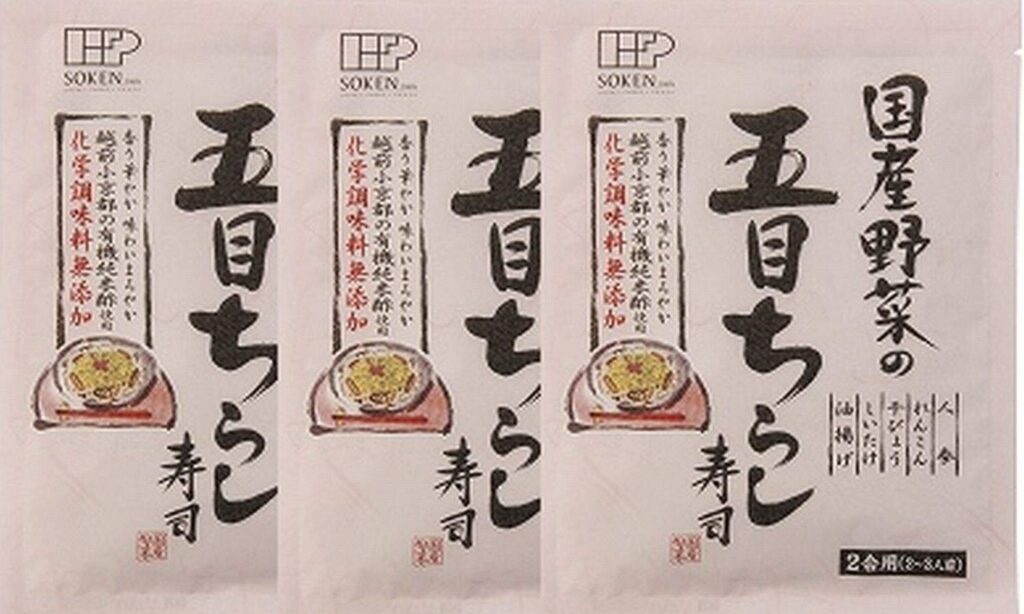 SOKEN
五目ちらし
寿司
香り華やか 味わいまろやか
越前小京都の有機純米酢使用
化学調味料無添加
SOKEN
五目ちらし
寿司
香り華やか 味わいまろやか
越前小京都の有機純米酢使用
化学調味料無添加
SOKEN
国産野菜の
五目ちらし
寿司
香り華やか 味わいまろやか
越前小京都の有機純米酢使用
化学調味料無添加
人参
れんこん
干びょう
しいたけ
油揚げ
2合用(2〜3人前)